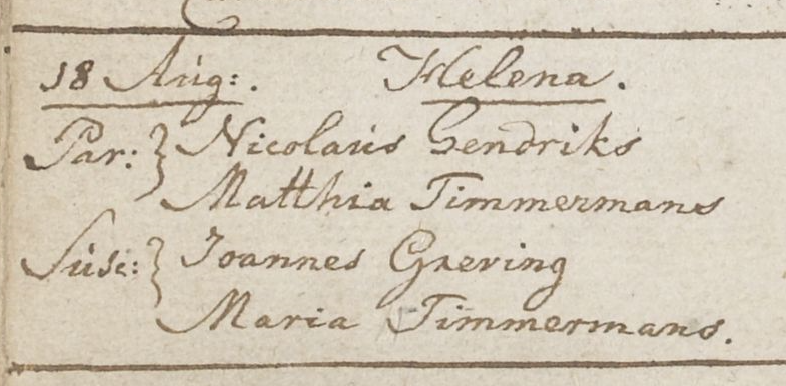 18 Aug: . Helena .
Par: } Nicolaus Hendriks
Matthia Timmermans
Susc: } Joannes Grering
Maria Timmermans.